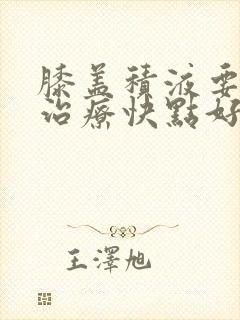 膝盖積液要
治療快點好
王澤旭